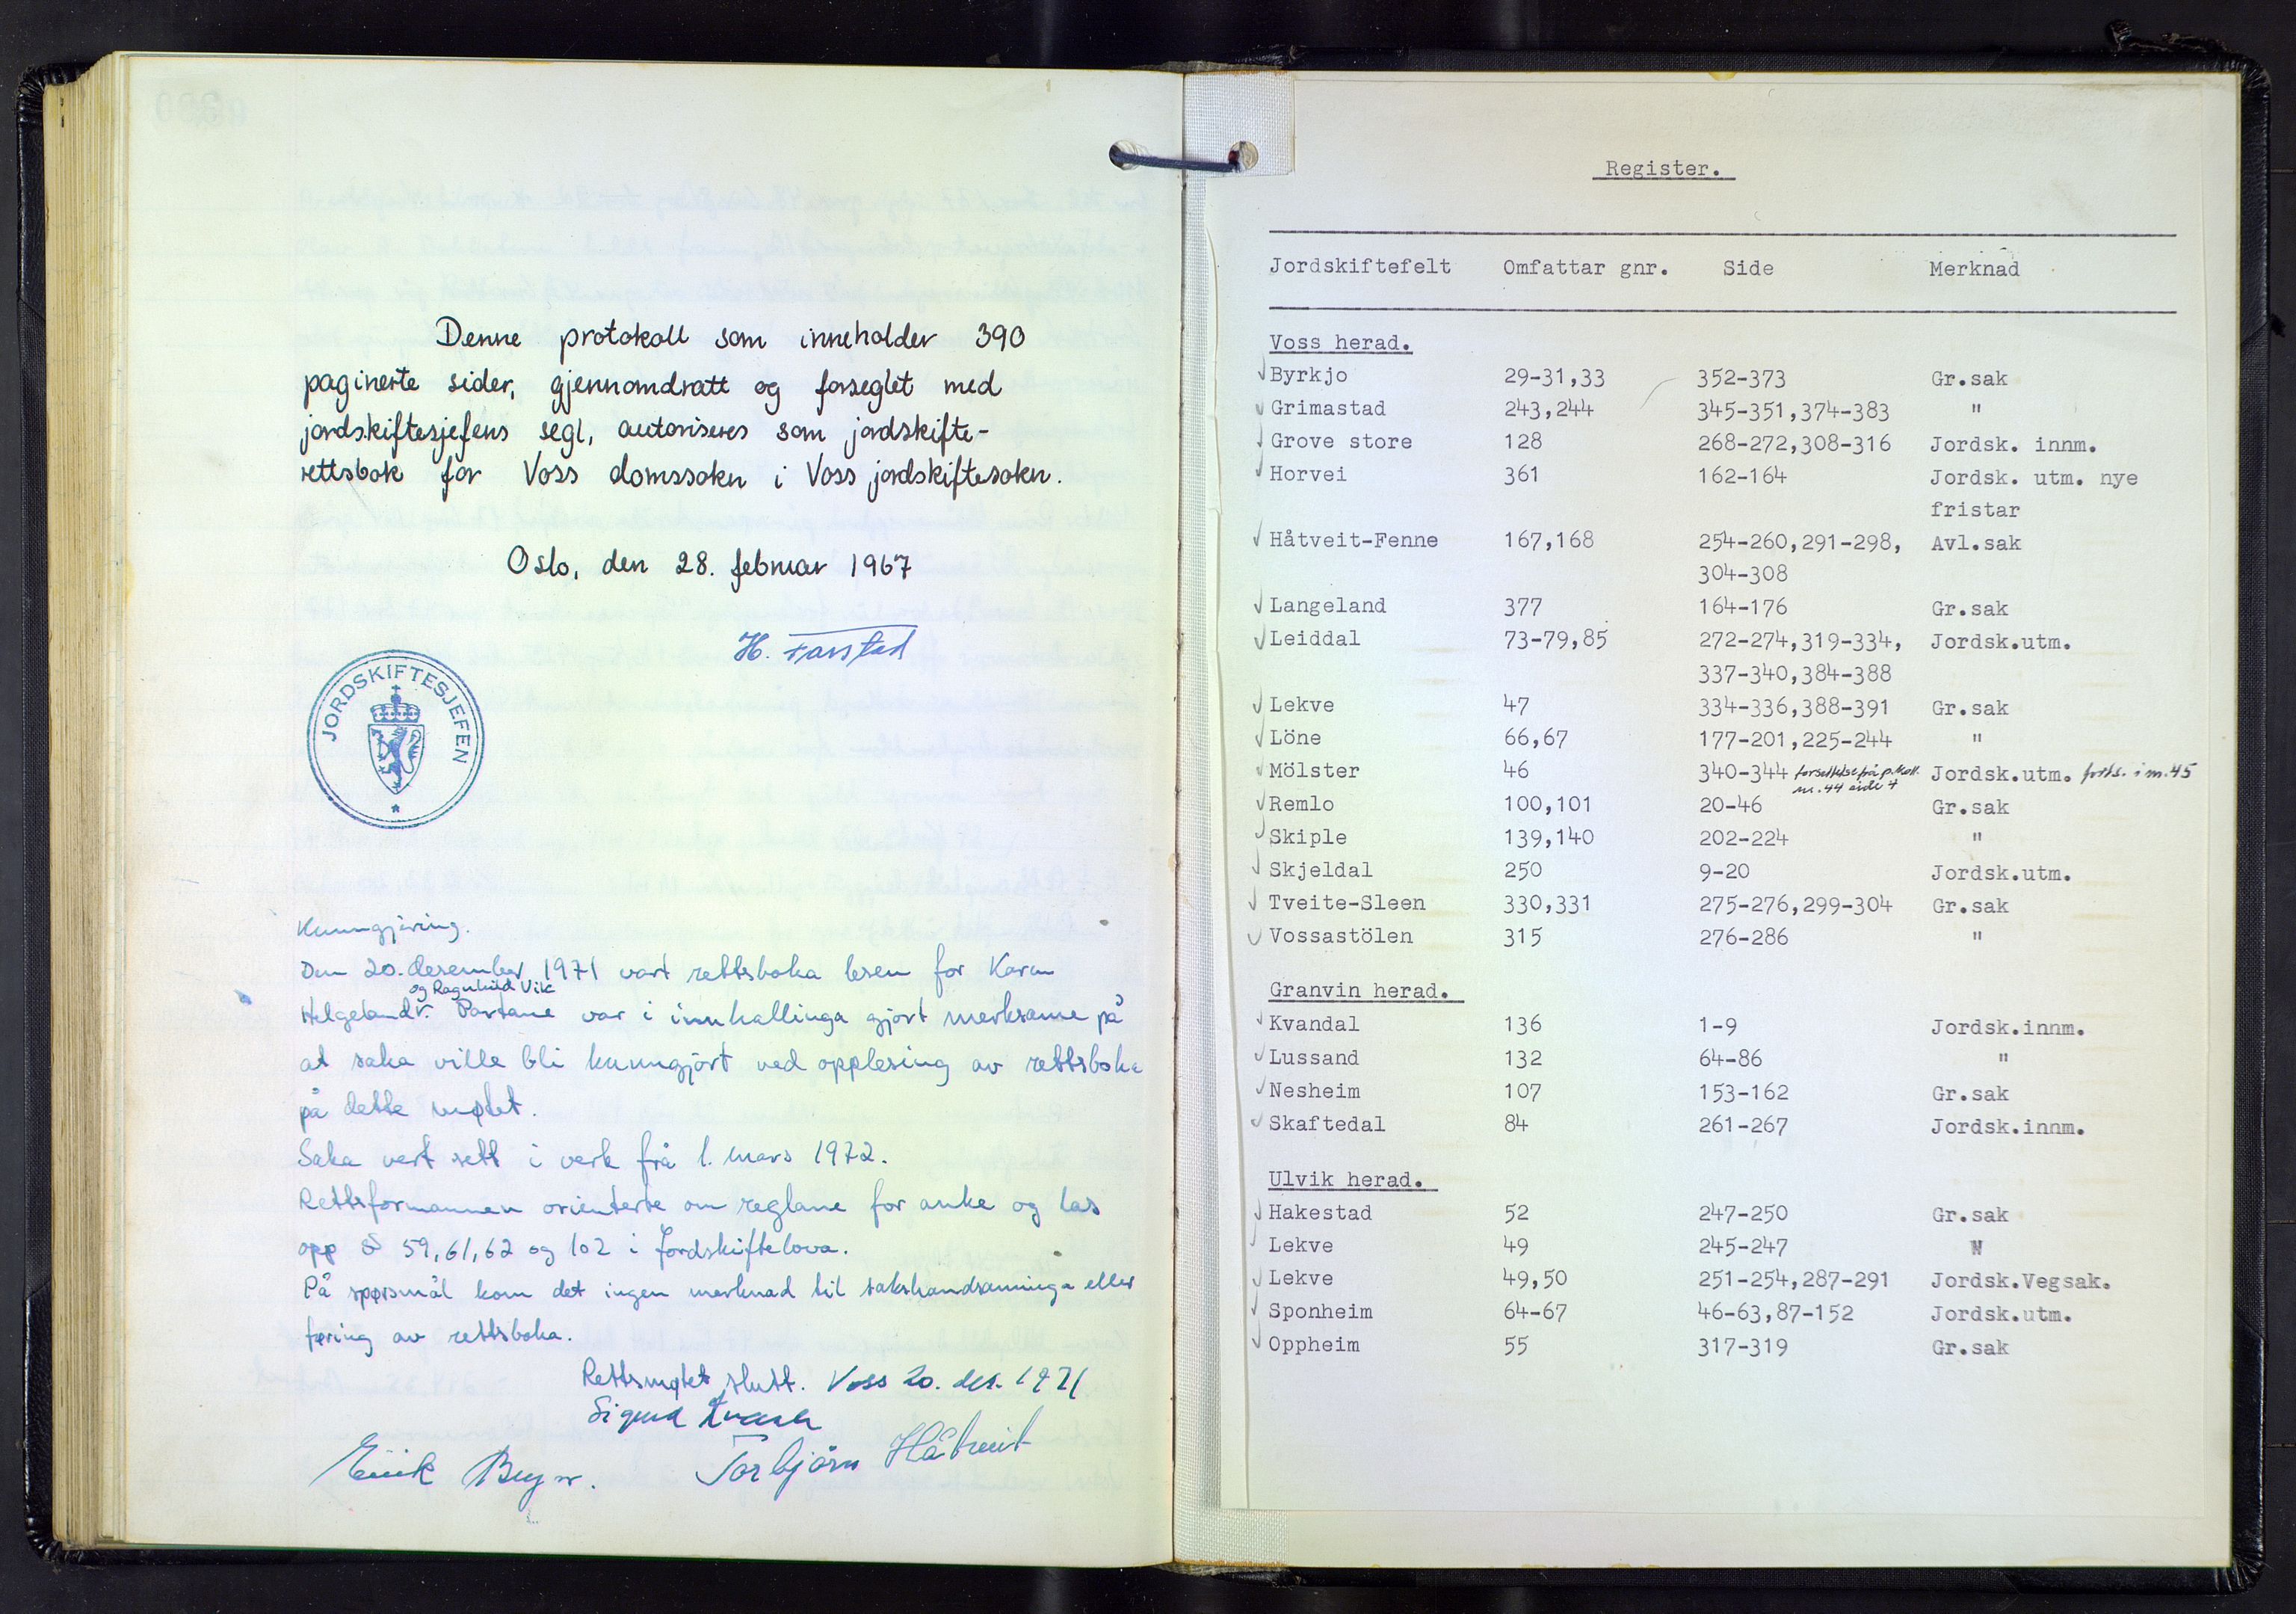 Denne protokoll som inneholder 390
paginerte sider, gjennomdratt og forseglet med
jordskiftesjefens segl, autoriseres som jordskifte-
rettsbok for Voss domssokn i Voss jordskiftesokn.
Oslo, den 28. februar 1967
H. Farstad
JORDSKIFTESJEFEN
Kunngjöring.
Den 20. desember 1971 vart rettsboka lesen for Karen
og Ragnhild Vik
Helgeland. Partane var i innkallinga gjort merksame på
at saka ville bli kunngjört ved opplesing av rettsboka
på dette møtet.
Saka vert sett i verk frå 1. mars 1972.
Rettsformannen orienterte om reglane for anke og las
opp § 59, 61, 62 og 102 i Jordskiftelova.
På spørsmål kom det ingen merknad til sakshandsaminga eller
føring av rettsboka.
Rettsmøtet slutt. Voss 20. des. 1971
Sigurd
Eirik Torbjörn Håtveit
Register.
Jordskiftefelt Omfattar gnr. Side Merknad
Voss herad.
Byrkjo 29-31,33 352-373 Gr.sak
Grimastad 243,244 345-351,374-383 "
Grove store 128 268-272,308-316 Jordsk. innm.
Horvei 361 162-164 Jordsk. utm. nye
fristar
Håtveit-Fenne 167,168 254-260,291-298, Avl.sak
304-308
Langeland 377 164-176 Gr.sak
Leiddal 73-79,85 272-274,319-334, Jordsk.utm.
337-340,384-388
Lekve 47 334-336,388-391 Gr.sak
Löne 66,67 177-201,225-244 "
Mölster 46 340-344 forsettelse frå p.koll. Jordsk.utm. forts. i nr. 45
nr. 44 side 4
Remlo 100,101 20-46 Gr.sak
Skiple 139,140 202-224 "
Skjeldal 250 9-20 Jordsk.utm.
Tveite-Sleen 330,331 275-276,299-304 Gr.sak
Vossastölen 315 276-286 "
Granvin herad.
Kvandal 136 1-9 Jordsk.innm.
Lussand 132 64-86 "
Nesheim 107 153-162 Gr.sak
Skaftedal 84 261-267 Jordsk.innm.
Ulvik herad.
Hakestad 52 247-250 Gr.sak
Lekve 49 245-247 "
Lekve 49,50 251-254,287-291 Jordsk.Vegsak.
Sponheim 64-67 46-63,87-152 Jordsk.utm.
Oppheim 55 317-319 Gr.sak